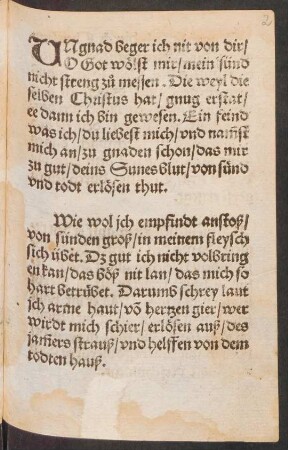 2
UNgnad beger ich nit von dir/
O Got wölst mir/ mein sünd
nicht streng zů messen. Die weyl die
selben Christus hat/ gnug erstat/
ee dann ich bin gewesen. Ein feind
was ich/ du liebest mich/ vnd namst
mich an/ zu gnaden schon/ das mir
zu gut/ deins Sunes blut/ von sünd
vnd todt erlösen thut.
Wie wol jch empfindt anstoß/
von sünden groß/ in meinem fleysch
sich übet. Dz gut ich nicht volbring
en kan/ das böß nit lan/ das mich so
hart betrübet. Darumb schrey laut
jch arme haut/ võ hertzen gier/ wer
wirdt mich schier/ erlösen auß/ des
jamers strauß/ vnd helffen von dem
todten hauß.